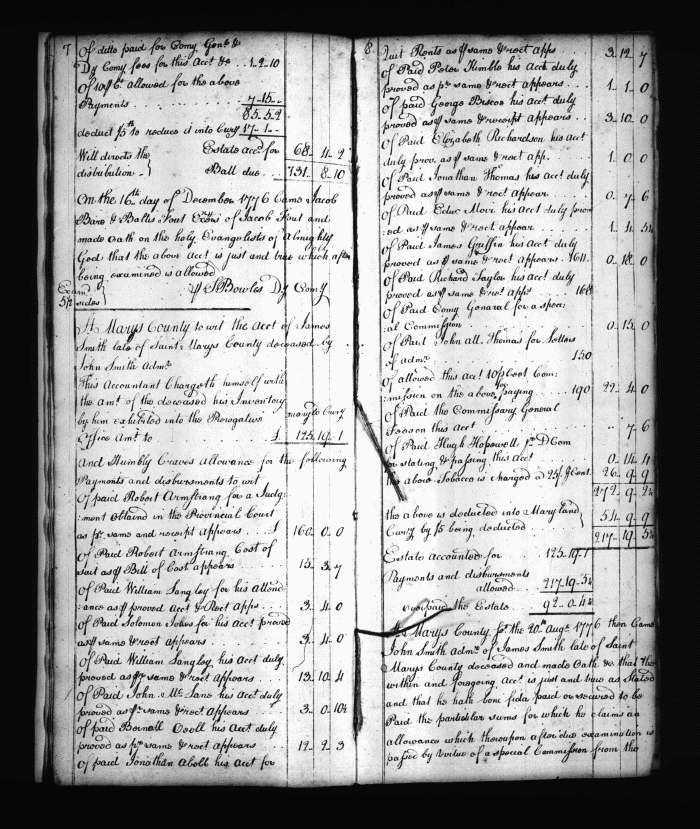 7
Of ditto paid for Comy Genl &
Dy Comy fees for this Acct &c . . 1 - 2 - 10
Of 10 Ct allowed for the above
Payments . . . . . . . 7 - 15 - -
85 - 5 -
deduct to reduce it into Curry 17 - 1 -
Will directs the Estate acct for 68 - 4 - 2
distribution - } Ball due . . 731 - 8 - 10
On the 16th day of December 1776 Came Jacob
and
made oath on the holy Evangelists of Almighty
God that the above Acct is just and true which after
being examined is allowed
Exam
sides } Bowles Dy Comy
St Marys County to wit the Acct of James
Smith late of Saint Marys County deceased by
John Smith Admr
This Accountant Chargeth himself with
the Amt of the deceased his Inventory
by him exhibited into the Prerogative
Office Amt to . . . . . . . £ 125 - 19 - 1
And Humbly Craves allowance for the following
Payments and disbursments to wit
Of paid Robert Armstrang for a Judg=
=ment obtaind in the Provincial Court
as pr same and receipt appears . . £ 160 - 0 - 0
Of Paid Robert Armstrang Cost of
Suit as Bill of Cost appears . . . 15 - 3 - 7
Of Paid William Langley for his attend
=ance as proved Acct & Rect apps . . . 3 - 4 - 0
Of Paid Solomon for his Acct proved
as same & rect appears . . . 3 - 4 - 0
Of Paid William Langley his Acct duly
proved as same & rect appears . . . 13 - 10 - 4
Of Paid John his Acct duly
proved as same & rect appears . . . 3 - 0 - 10½
Of paid his Acct duly
proved as pr same & rect appears . . . 12 - 2 - 3
Of paid Jonathan his Acct for
8
Quit Rents as same & rect apps . . . 3 - 12 - 7
Of Paid Peter his Acct duly
proved as pr same & rect appears . . 1 - 1 - 0
Of paid George Biscoe his Acct duly
proved as same & receipt appears . . 3 - 10 - 0
Of Paid Elizabeth Richardson his Acct
duly prov. as same & rect app. . . . 1 - 0 - 0
Of Paid Jonathan Thomas his Acct duly
proved as same & rect appear . . . 0 - 7 - 6
Of Paid his Acct duly prov
ed as same & rect appear . . .
Of Paid James Griffin his Acct duly
proved as same & rect appears . . 0 - 18 - 0
Of Paid Richard Taylor his Acct duly
proved as same & rect appr . . . 168
Of Paid Comy General for a speci
al Commission . . . . . . . 0 - 15 - 0
Of Paid John all. Thomas for Letters
of admr . . . . . . 150
Of allowed this Acct 10 Cent Com=
=mission on the above for paying . . . 190 22 - 4 - 0
Of Paid the Commissary General
Fees on this Acct . . . . . " - 7 - 6
Of Paid Hugh Hopewell D Com
for stating & passing this Acct 0 - 14 - 4
the above Tobacco is charged a 25/ Cent. 26 - 9 - 9
272 - 9 -
the above is deducted into Maryland }
Curry by being deducted . . . } 54 - 9 - 9
217 - 19 -
Estate accounted for 125 - 19 - 1
Payments and disbursments
allowed . . 217 - 19 -
overpaid the Estate . . 92 - 0 -
St Marys County the 20th Augt 1776 then Came
John Smith Admr of James Smith late of Saint
Marys County deceased and made Oath & that the
within and foregoing Acct is just and true as Stated
and that he hath bona fida paid or secured to be
Paid the particular sums for which he claims an
allowance which thereupon after due examination is
passed by virtue of a special Commission from the